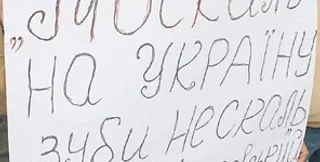 „Москаль
НА УКРАЇНУ
ЗУБИ НЕ СКАЛЬ